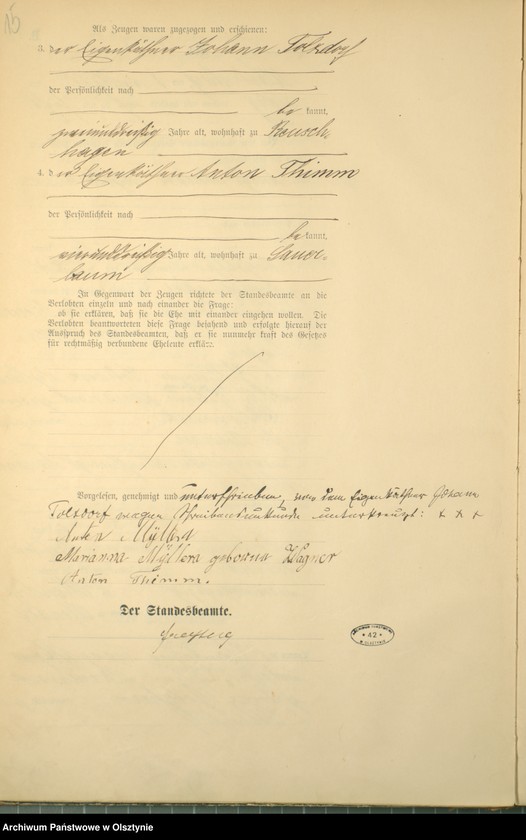 15
Als Zeugen waren zugezogen und erschienen:
3. der Eigenkäthner Johann Tolxdorf
der Persönlichkeit nach
be kannt,
zweiunddreißig Jahre alt, wohnhaft zu Reusch-
hagen
4. der Eigenkäthner Anton Thimm
der Persönlichkeit nach
be kannt,
vierunddreißig Jahre alt, wohnhaft zu Sauer-
baum
In Gegenwart der Zeugen richtete der Standesbeamte an die
Verlobten einzeln und nach einander die Frage:
ob sie erklären, daß sie die Ehe mit einander eingehen wollen. Die
Verlobten beantworteten diese Frage bejahend und erfolgte hierauf der
Ausspruch des Standesbeamten, daß er sie nunmehr kraft des Gesetzes
für rechtmäßig verbundene Eheleute erkläre.
Vorgelesen, genehmigt und unterschrieben, von dem Eigenkäthner Johann
Tolxdorf wegen Schreibensunkunde unterkreuzt: + + +
Anton
Marianna geborene Wagner
Anton Thimm.
Der Standesbeamte.
* 42 *
Archiwum Państwowe w Olsztynie